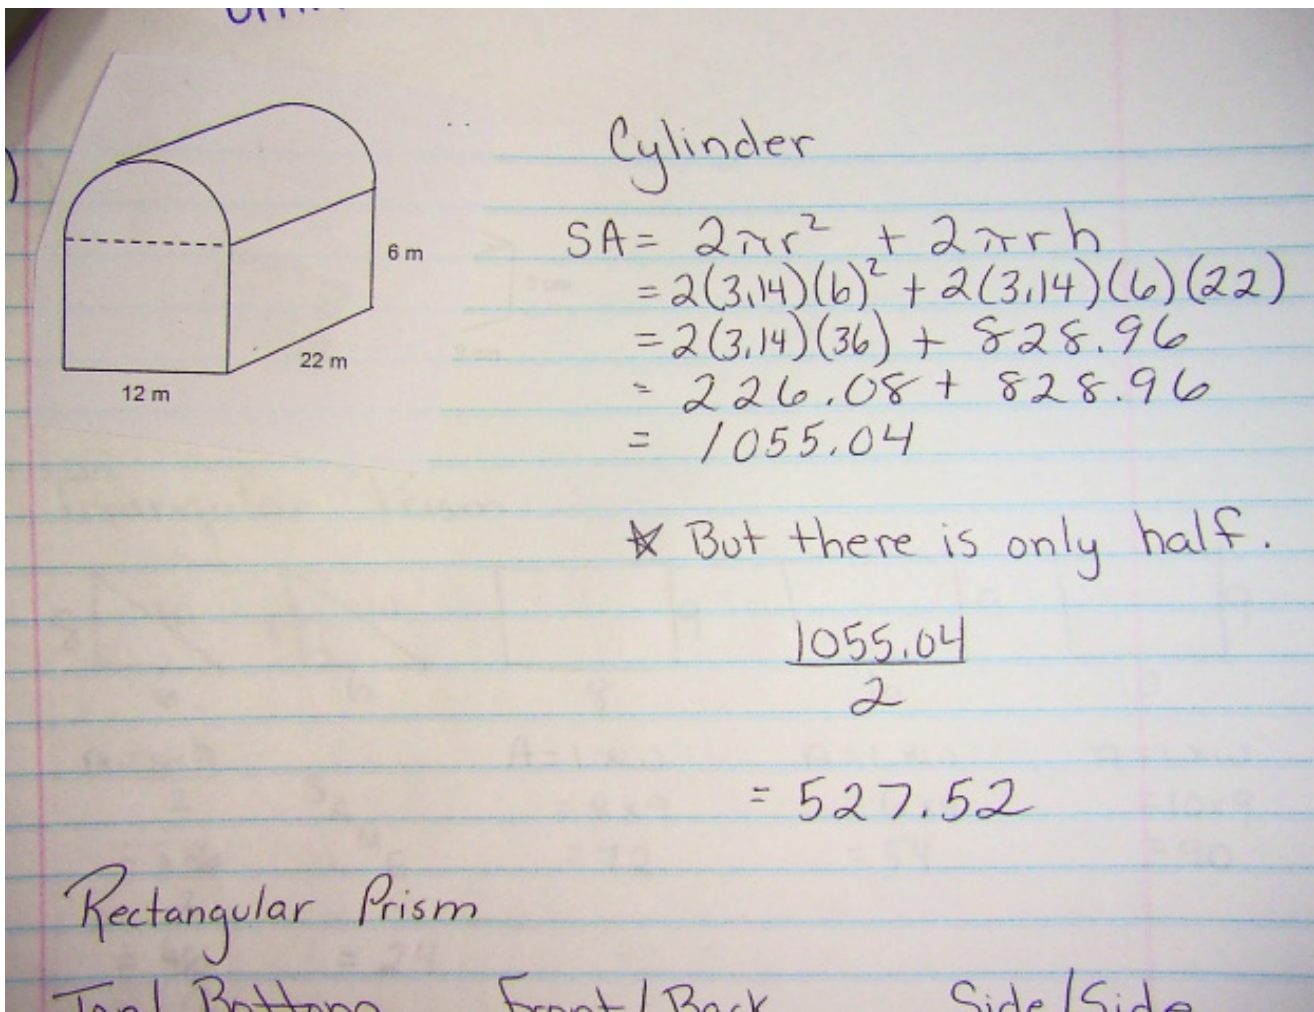 6 m
22 m
12 m
Cylinder
SA = 2πr² + 2πrh
= 2(3.14)(6)² + 2(3.14)(6)(22)
= 2(3.14)(36) + 828.96
= 226.08 + 828.96
= 1055.04
☆ But there is only half.
1055.04
2
= 527.52
Rectangular Prism
Top/Bottom Front/Back Side/Side